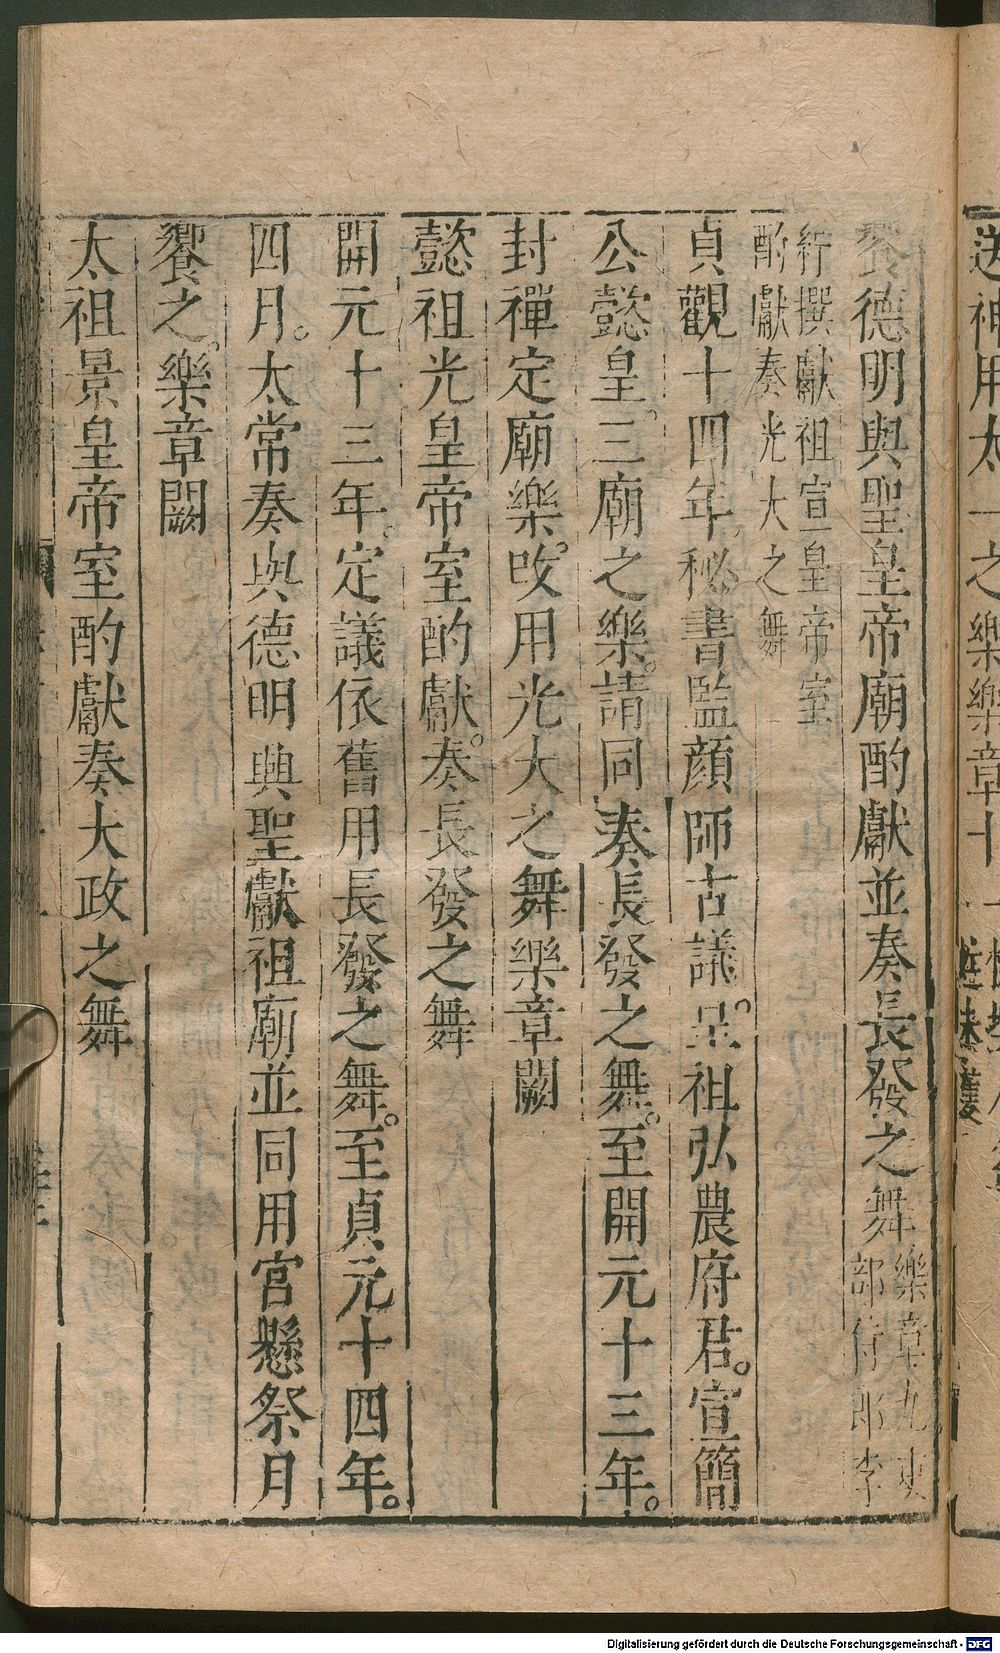 送神用太一之樂樂章十一
饗德明與聖皇帝廟酌獻並奏長發之舞樂章九吏部侍郎李
紓撰獻祖宣皇帝室
酌獻奏光大之舞
貞觀十四年秘書監顔師古議。皇祖弘農府君。宣簡
公懿皇。三廟之樂。請同奏長發之舞。至開元十三年。
封禪定廟樂。攺用光大之舞樂章闕
懿祖光皇帝室酌獻。奏長發之舞
開元十三年。定議依舊用長發之舞。至貞元十四年。
四月。太常奏與德明興聖獻祖廟並同用宮懸祭月
饗之。樂章闕
太祖景皇帝室酌獻奏大政之舞
Digitalisierung gefördert durch die Deutsche Forschungsgemeinschaft - DFG